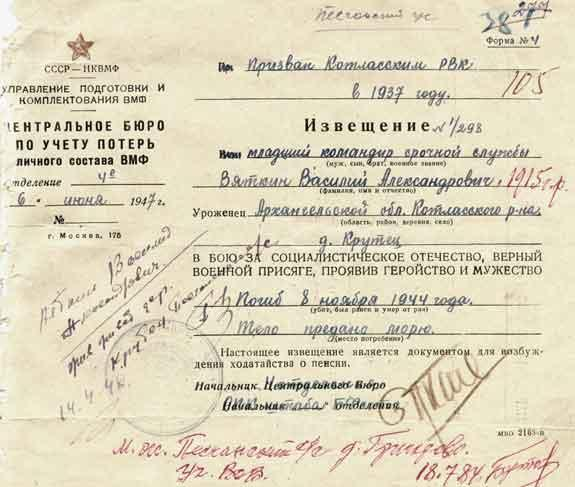 Песчанский с/с
277
Форма № 4
СССР—НКВМФ
УПРАВЛЕНИЕ ПОДГОТОВКИ И
КОМПЛЕКТОВАНИЯ ВМФ
ЦЕНТРАЛЬНОЕ БЮРО
ПО УЧЕТУ ПОТЕРЬ
личного состава ВМФ
Отделение 4е
6 . июня 1947 г.
№
г. Москва, 175
Призван Котласским РВК
в 1937 году.
105
Извещение № 1/298
младший командир срочной службы
(муж, сын, брат, военное звание)
Вяткин Василий Александрович 1915 г.р.
(фамилия, имя и отчество)
Уроженец Архангельской обл. Котласского р-на
(область, район, деревня, село)
с/с д. Крутец
В БОЮ ЗА СОЦИАЛИСТИЧЕСКОЕ ОТЕЧЕСТВО, ВЕРНЫЙ
ВОЕННОЙ ПРИСЯГЕ, ПРОЯВИВ ГЕРОЙСТВО И МУЖЕСТВО
Погиб 8 ноября 1944 года.
(убит, был ранен и умер от ран)
Тело предано морю.
(место погребения)
Настоящее извещение является документом для возбуж-
дения ходатайства о пенсии.
Начальник Центрального Бюро
Начальник отделения
Василид
14.4.48
МВО 2168-в
М. ж. Песчанский с/с д.
Уч. ВОВ.
18.7.84